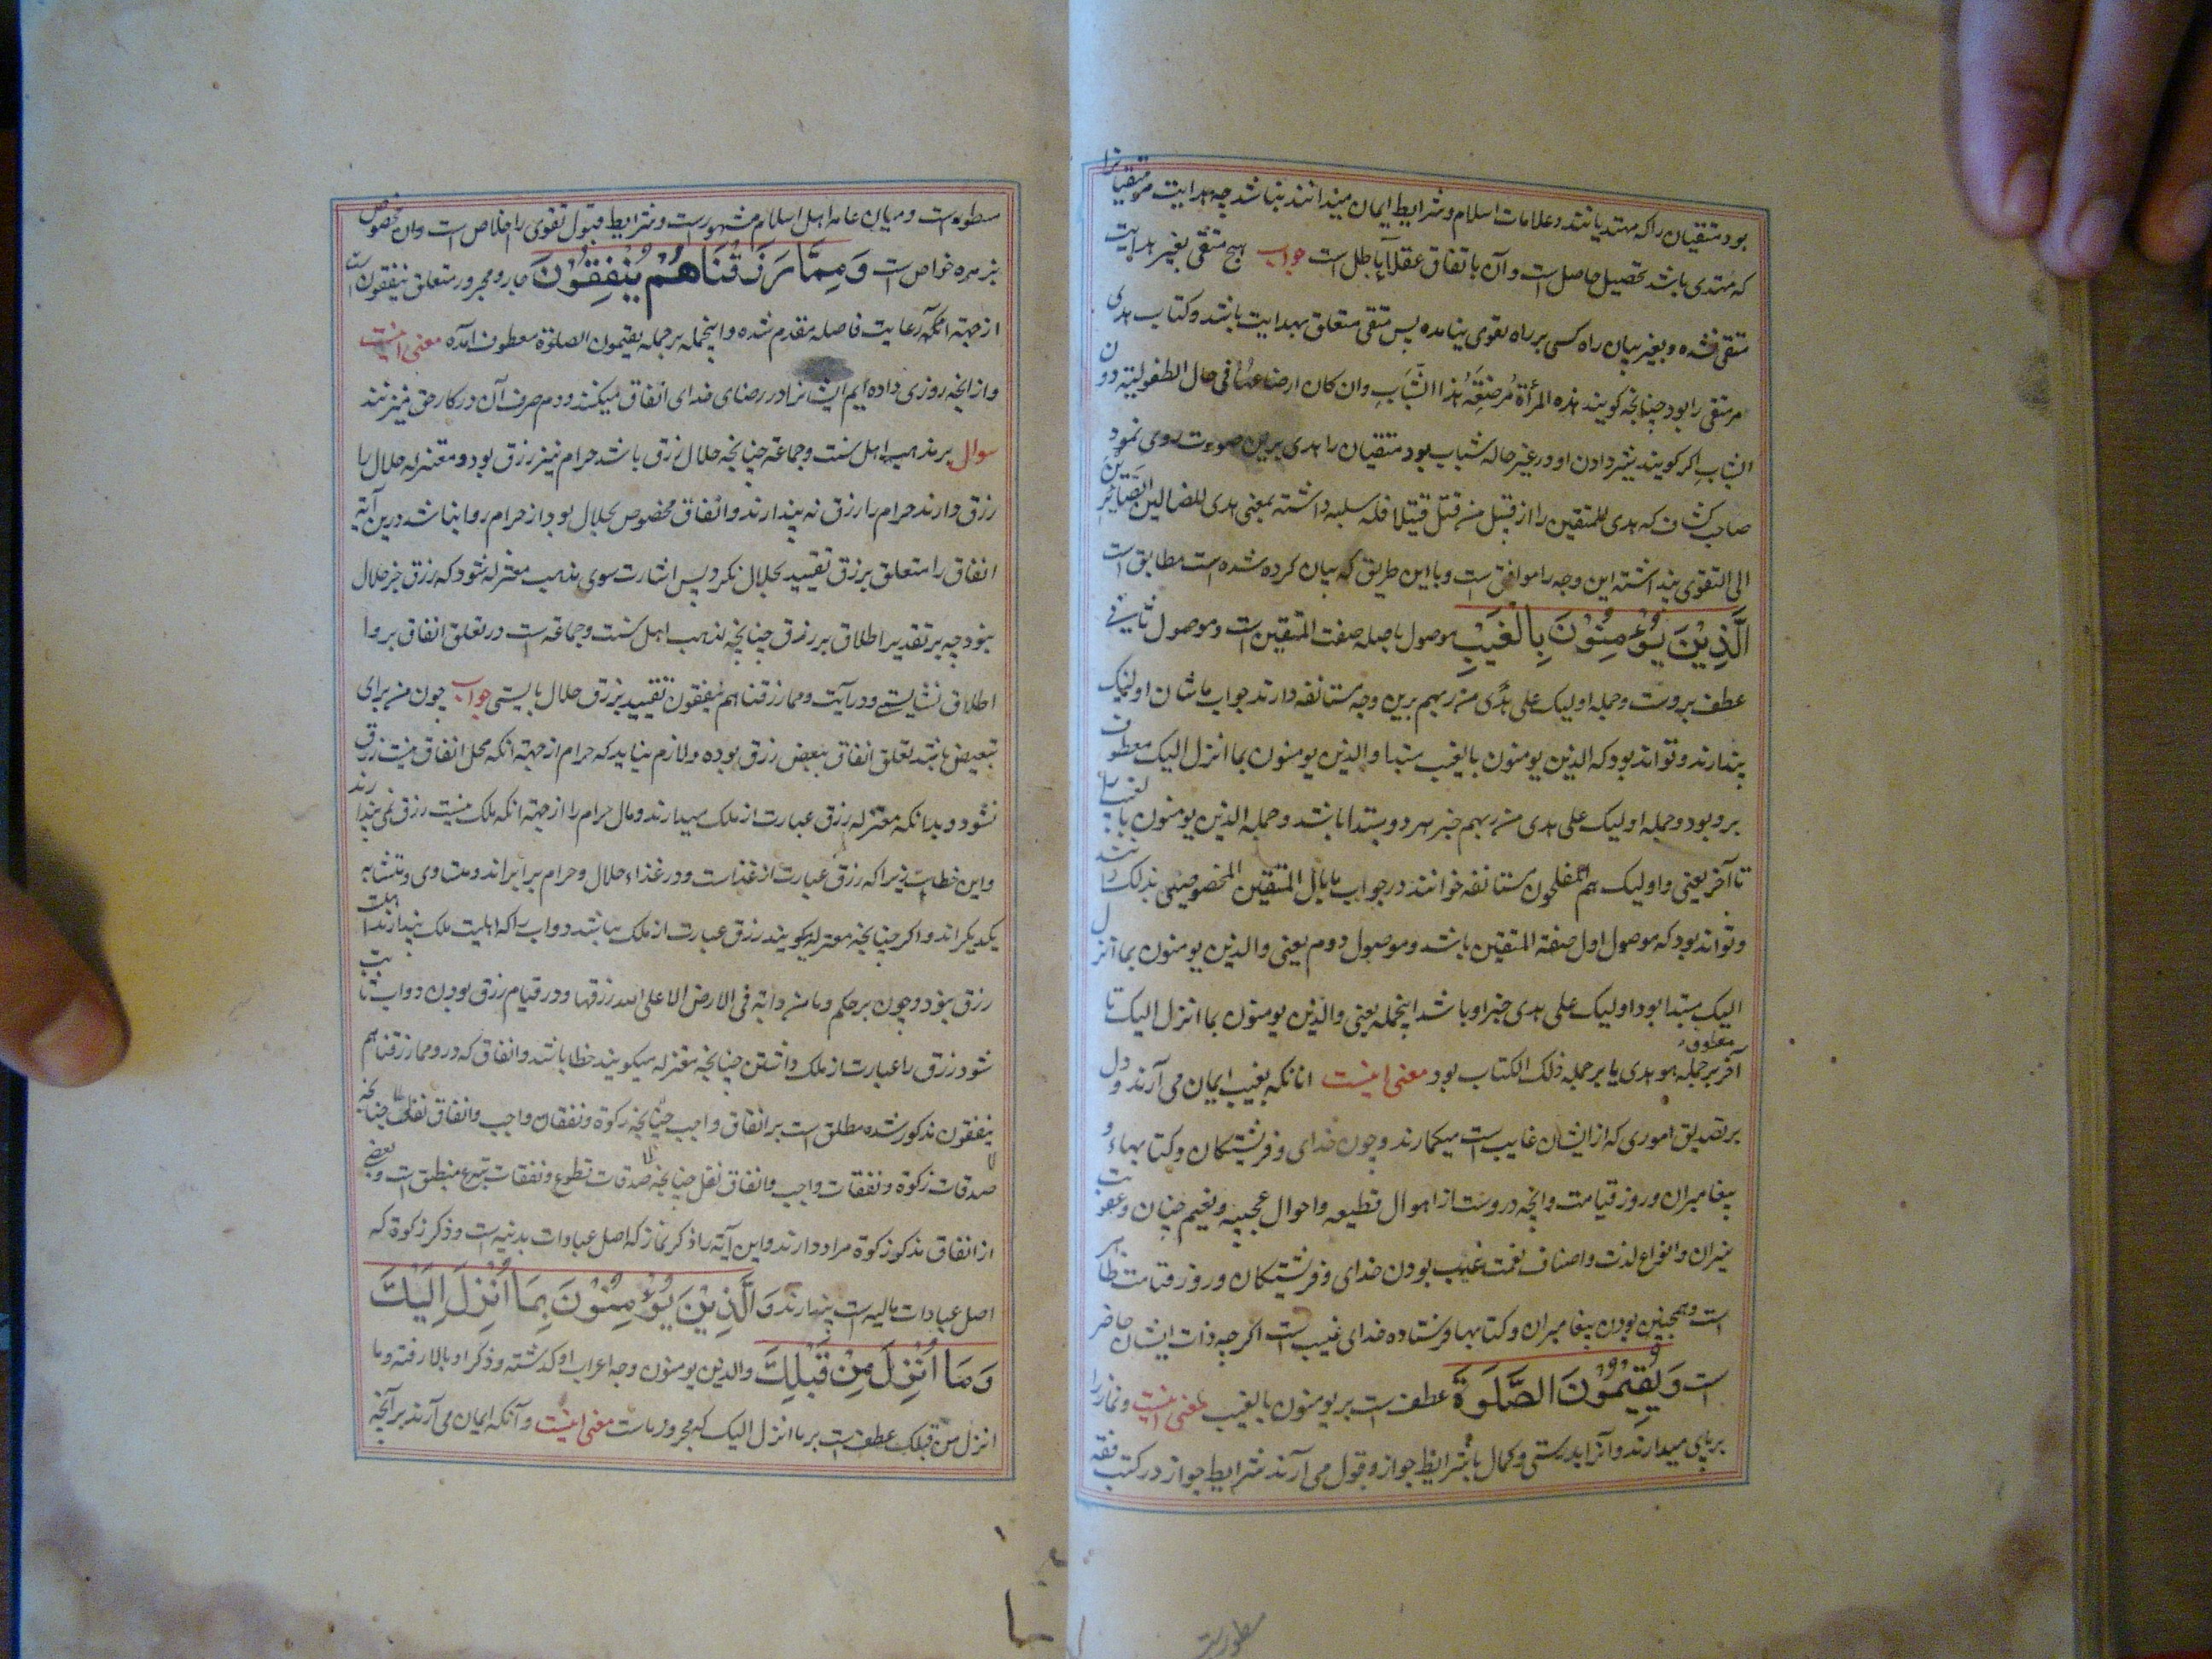 بود متقیان را که مهتد یا نتد و علامات اسلام و شرایط ایمان میدانند نباشد چه هدایت مر متقیانرا
که مهتدی باشد تحصیل حاصل است و آن باتفاق عقلا باطل است جواب هیچ متقی بغیر هدایت
متقی نشده و بغیر بیان راه کسی بر راه تقوی نیامده پس متقی متعلق بهدایت باشد و کتاب هدی
مر متقی را بود چنانچه کویند هذه المرأة مرضعة هذا الشاب وان کان ارضاعها فی حال الطفولیة دون
الشباب اکر کویند شیر دادن او در غیر حاله شباب بود متقیان را هدی برین صورت روی نمود
صاحب کشاف که هدی للمتقین را از قبیل من قتل قتیلا فله سلبه داشته بمعنی هدی للضالین الصایرین
الی التقوی پنداشته این وجه را موافق است و با این طریق که بیان کرده شده است مطابق است
الَّذِیْنَ یُؤْمِنُوْنَ بِالْغَیْبِ موصول با صله صفت المتقین است و موصول ثانی
عطف بروست و جمله اولیک علی هدی من ربهم برین وجه مستانفه دارند جواب ما شان اولیک
پندارند و تواند بود که الذین یومنون بالغیب مبتدا والذین یومنون بما انزل الیک معطوف
برو بود و جمله اولیک علی هدی من ربهم خبر هر دو مبتدا باشد و جمله الذین یومنون بالغیب
تا آخر یعنی و اولیک هم المفلحون مستانفه خوانند در جواب ما بال المتقین المخصوصین بذلک
و تواند بود که موصول اول صفة المتقین باشد و موصول دوم یعنی والذین یومنون بما انزل
الیک مبتدا بود اولیک علی هدی خبر او باشد اینجمله یعنی والذین یومنون بما انزل الیک تا
آخر بر جمله هو هدی یا بر جمله ذلک الکتاب معطوف بود معنی اینست انانکه بغیب ایمان می آرند و دل
بر تصدیق اموری که از ایشان غایب است میکمارند و چون خدای و فرشتکان و کتابها و
پیغامبران و روز قیامت و انچه دروست از اهوال قطیعه و احوال عجیبه و نعیم جنان و عقوبت
نیران و انواع لذت و اصناف نعمت غیب بودن خدای و فرشتکان و روز قیامت ظاهر
است و همچنین بودن پیغامبران و کتابها و فرستاده خدای غیب است اکر چه ذات ایشان حاضر
است وَیُقِیْمُوْنَ الصَّلَوةَ عطف است بر یومنون بالغیب معنی اینست و نماز را
بر پای میدارند و آنرا بدرستی و کمال با شرایط جواز و قبول می آرند شرایط جواز در کتب فقه
سطورست
سطورست و میان عامه اهل اسلام مشهورست و شرایط قبول تقوی را اخلاص است و ان مخصوص
بزمره خواص است وَمِمَّا رَزَقْنَاهُمْ یُنْفِقُوْنَ جار و مجرور متعلق ینفقون است
از جهة انکه رعایت فاصله مقدم شده و اینجمله بر جمله یقیمون الصلوة معطوف امده معنی اینست
و از انچه روزی داده ایم ایشانرا در رضای خدای انفاق میکنند و دم صرف آن در کار حق میزنند
سوال بر مذهب اهل سنت و جماعة چنانچه حلال رزق باشد حرام نیز رزق بود و معتزله حلال را
رزق دارند حرام را رزق نه پندارند و انفاق مخصوص بحلال بود از حرام روا نباشد درین آیة
انفاق را متعلق برزق تقیید بحلال نکرد پس اشارت سوی مذهب معتزله شود که رزق جز حلال
نبود چه بر تقدیر اطلاق بر رزق چنانچه مذهب اهل سنت و جماعة است در تعلق انفاق برو ا
اطلاق نشایستی و در آیت و مما رزقناهم ینفقون تقیید برزق حلال بایستی جواب چون من برای
تبعیض باشد تعلق انفاق ببعض رزق بوده و لازم نیاید که حرام از جهة انکه محل انفاق نیست رزق
نشود و بدانکه معتزله رزق عبارت از ملک میدارند و مال حرام را از جهة انکه ملک نیست رزق نمی پندارند
و این خطاست زیرا که رزق عبارت از غذاست و در غذاء حلال و حرام برابراند و متساوی و متشابه
یکدیکراند و اکر چنانچه معتزله کویند رزق عبارت از ملک باشد دواب را که اهلیت ملک نیست
رزق نبود و چون بر حکم وما من دابة فی الارض الا علی الله رزقها و در قیام رزق بودن دواب ثابت
شود رزق را عبارت از ملک داشتن چنانچه معتزله میکویند خطا باشد و انفاق که در و مما رزقناهم
ینفقون مذکور شده مطلق است بر انفاق واجب چنانچه زکوة و نفقات واجب و انفاق نفل چنانچه
صدقات زکوة و نفقات واجب و انفاق نفل چنانچه صدقات تطوع و نفقات تبرع منطلق است و بعضی
از انفاق مذکور زکوة مراد دارند و این آیة را ذکر نماز که اصل عبادات بدنیه است و ذکر زکوة که
اصل عبادات مالیه است پندارند وَالَّذِیْنَ یُؤْمِنُوْنَ بِمَا اُنْزِلَ اِلَیْكَ
وَمَا اُنْزِلَ مِنْ قَبْلِكَ والذین یومنون وجه اعراب او کذشته و ذکر او بالا رفته و ما
انزل من قبلک عطف است بر ما انزل الیک که مجرور ماست معنی اینست و آنکه ایمان می آرند بر آنچه